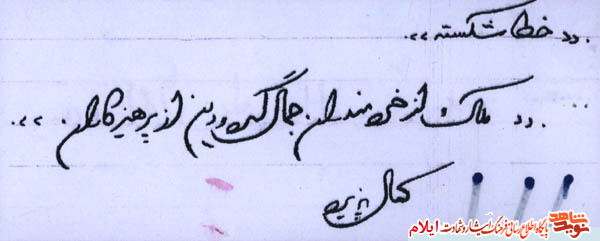 .. خط شکسته ..
.. ملک از خردمندان جمال گیرد و دین از پرهیزکاران ..
کمال پذیرد
نوید شاهد
پایگاه اطلاع رسانی فرهنگ ایثار و شهادت ایلام